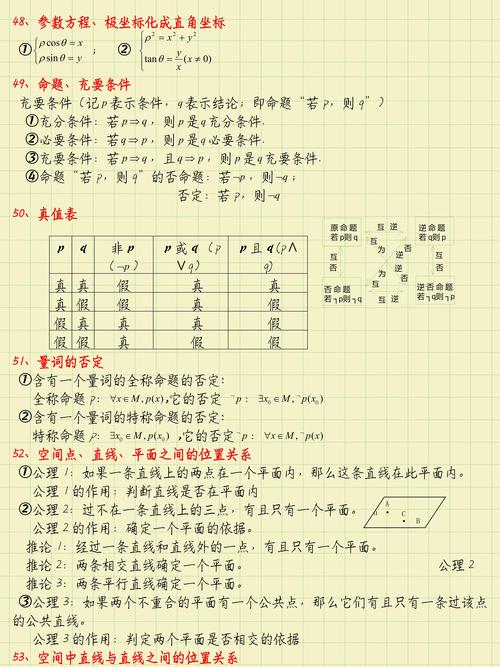 48、参数方程、极坐标化成直角坐标
① { ρcosθ = x
ρsinθ = y ； ② { ρ² = x² + y²
tanθ = y/x (x≠0)
49、命题、充要条件
充要条件（记p表示条件，q表示结论；即命题“若p，则q”）
①充分条件：若p⇒q，则p是q充分条件.
②必要条件：若q⇒p，则p是q必要条件.
③充要条件：若p⇒q，且q⇒p，则p是q充要条件.
④命题“若p，则q”的否命题：若¬p，则¬q；
否定：若p，则¬q
50、真值表
p q 非p（¬p） p或q（p∨q） p且q(p∧q)
真 真 假 真 真
真 假 假 真 假
假 真 真 真 假
假 假 真 假 假
原命题 若p则q
互 逆
逆命题 若q则p
互 否
互 为 逆 否
互 为 逆 否
互 否
否命题 若┐p则┐q
互 逆
逆否命题 若┐q则┐p
51、量词的否定
①含有一个量词的全称命题的否定：
全称命题p：∀x∈M,p(x)，它的否定 ¬p：∃x₀∈M,¬p(x₀)
②含有一个量词的特称命题的否定：
特称命题p：∃x₀∈M,p(x₀)，它的否定¬p：∀x∈M,¬p(x)
52、空间点、直线、平面之间的位置关系
①公理1：如果一条直线上的两点在一个平面内，那么这条直线在此平面内。
公理1的作用：判断直线是否在平面内
②公理2：过不在一条直线上的三点，有且只有一个平面。
公理2的作用：确定一个平面的依据。
α A C B
推论1：经过一条直线和直线外的一点，有且只有一个平面。
推论2：两条相交直线确定一个平面。 公理2
推论3：两条平行直线确定一个平面。
③公理3：如果两个不重合的平面有一个公共点，那么它们有且只有一条过该点
的公共直线。
公理3的作用：判定两个平面是否相交的依据
53、空间中直线与直线之间的位置关系